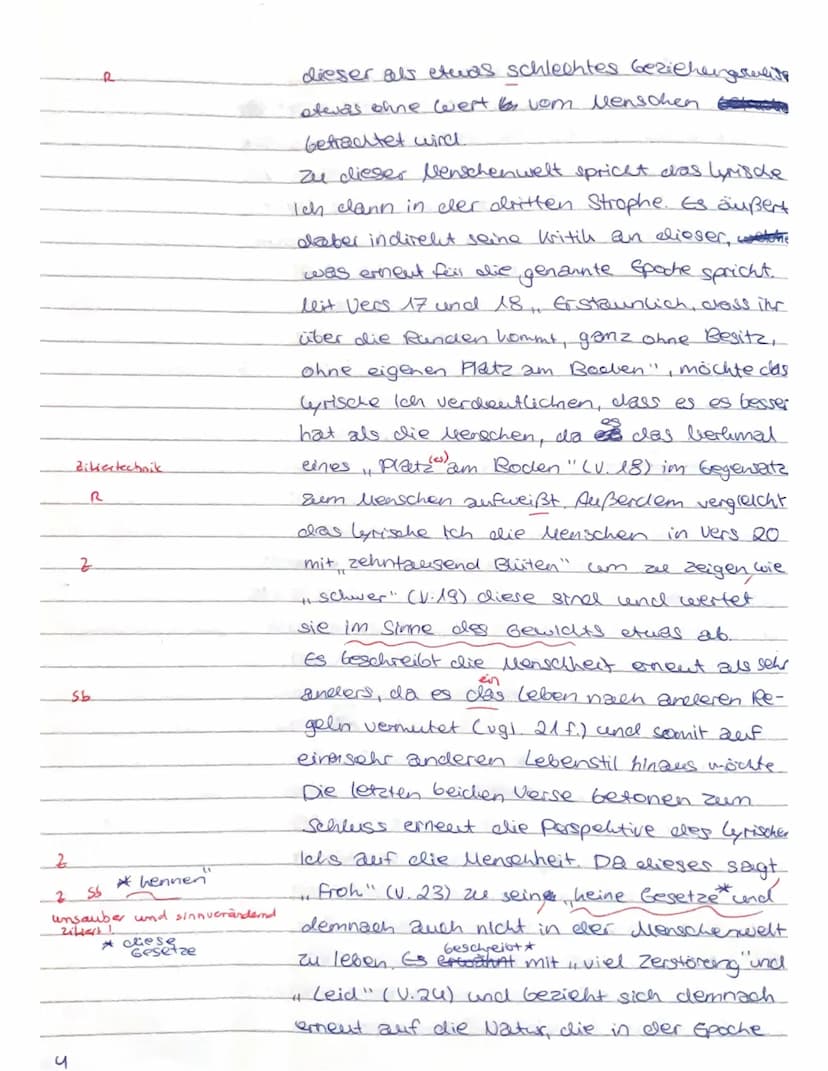 R dieser als etwas schlechtes beziehungsweise
etwas ohne Wert vom Menschen
betrachtet wird.
Zu dieser Menschenwelt spricht das lyrische
Ich dann in der dritten Strophe. Es äußert
dabei indirekt seine Kritik an dieser,
was erneut für die genannte Epoche spricht.
Mit Vers 17 und 18 „Erstaunlich, dass ihr
über die Runden kommt, ganz ohne Besitz,
ohne eigenen Platz am Boden", möchte das
lyrische Ich verdeutlichen, dass es es besser
hat als die Menschen, da es das Merkmal
Zitiertechnik eines „Platz(es) am Boden" (V. 18) im Gegensatz
R zum Menschen aufweißt. Außerdem vergleicht
das lyrische Ich die Menschen in Vers 20
Z mit „zehntausend Blüten" um zu zeigen, wie
„schwer" (V.19) diese sind und wertet
sie im Sinne des Gewichts etwas ab.
Es beschreibt die Menschheit erneut als sehr
ein
Sb anders, da es das Leben nach anderen Re-
geln vermutet (vgl. 21 f.) und somit auf
einen sehr anderen Lebenstil hinaus möchte.
Die letzten beiden Verse betonen zum
Schluss erneut die Perspektive des lyrischen
Z Ichs auf die Menschheit. Da dieses sagt,
Z Sb * kennen" „Froh" (V. 23) zu sein, „keine Gesetze* und
unsauber und sinnverändernd
zitiert! demnach auch nicht in der Menschenwelt
* diese
Gesetze
beschreibt*
zu leben. Es erwähnt mit „viel Zerstörung" und
„Leid" (V.24) und bezieht sich demnach
erneut auf die Natur, die in der Epoche
4